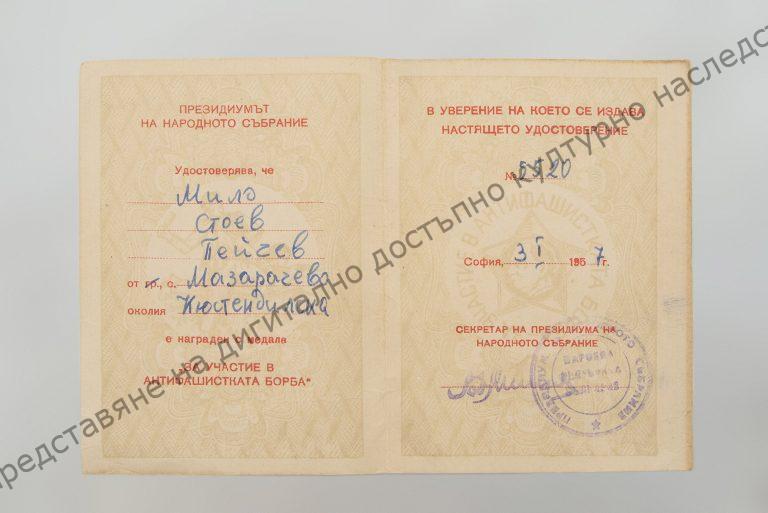 ПРЕЗИДИУМЪТ
НА НАРОДНОТО СЪБРАНИЕ
Удостоверява, че
Мило
Стоев
Пейчев
от гр., с. Мазарачево
околия Кюстендилска
е награден с медала
"ЗА УЧАСТИЕ В
АНТИФАШИСТКАТА БОРБА"
В УВЕРЕНИЕ НА КОЕТО СЕ ИЗДАВА
НАСТОЯЩЕТО УДОСТОВЕРЕНИЕ
№ 5520
София, 3 I 1957 г.
СЕКРЕТАР НА ПРЕЗИДИУМА НА
НАРОДНОТО СЪБРАНИЕ
представяне на дигитално достъпно културно наследст